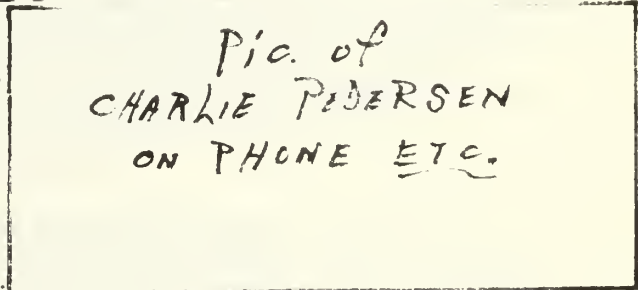 Pic. of
CHARLIE PEDERSEN
ON PHONE ETC.